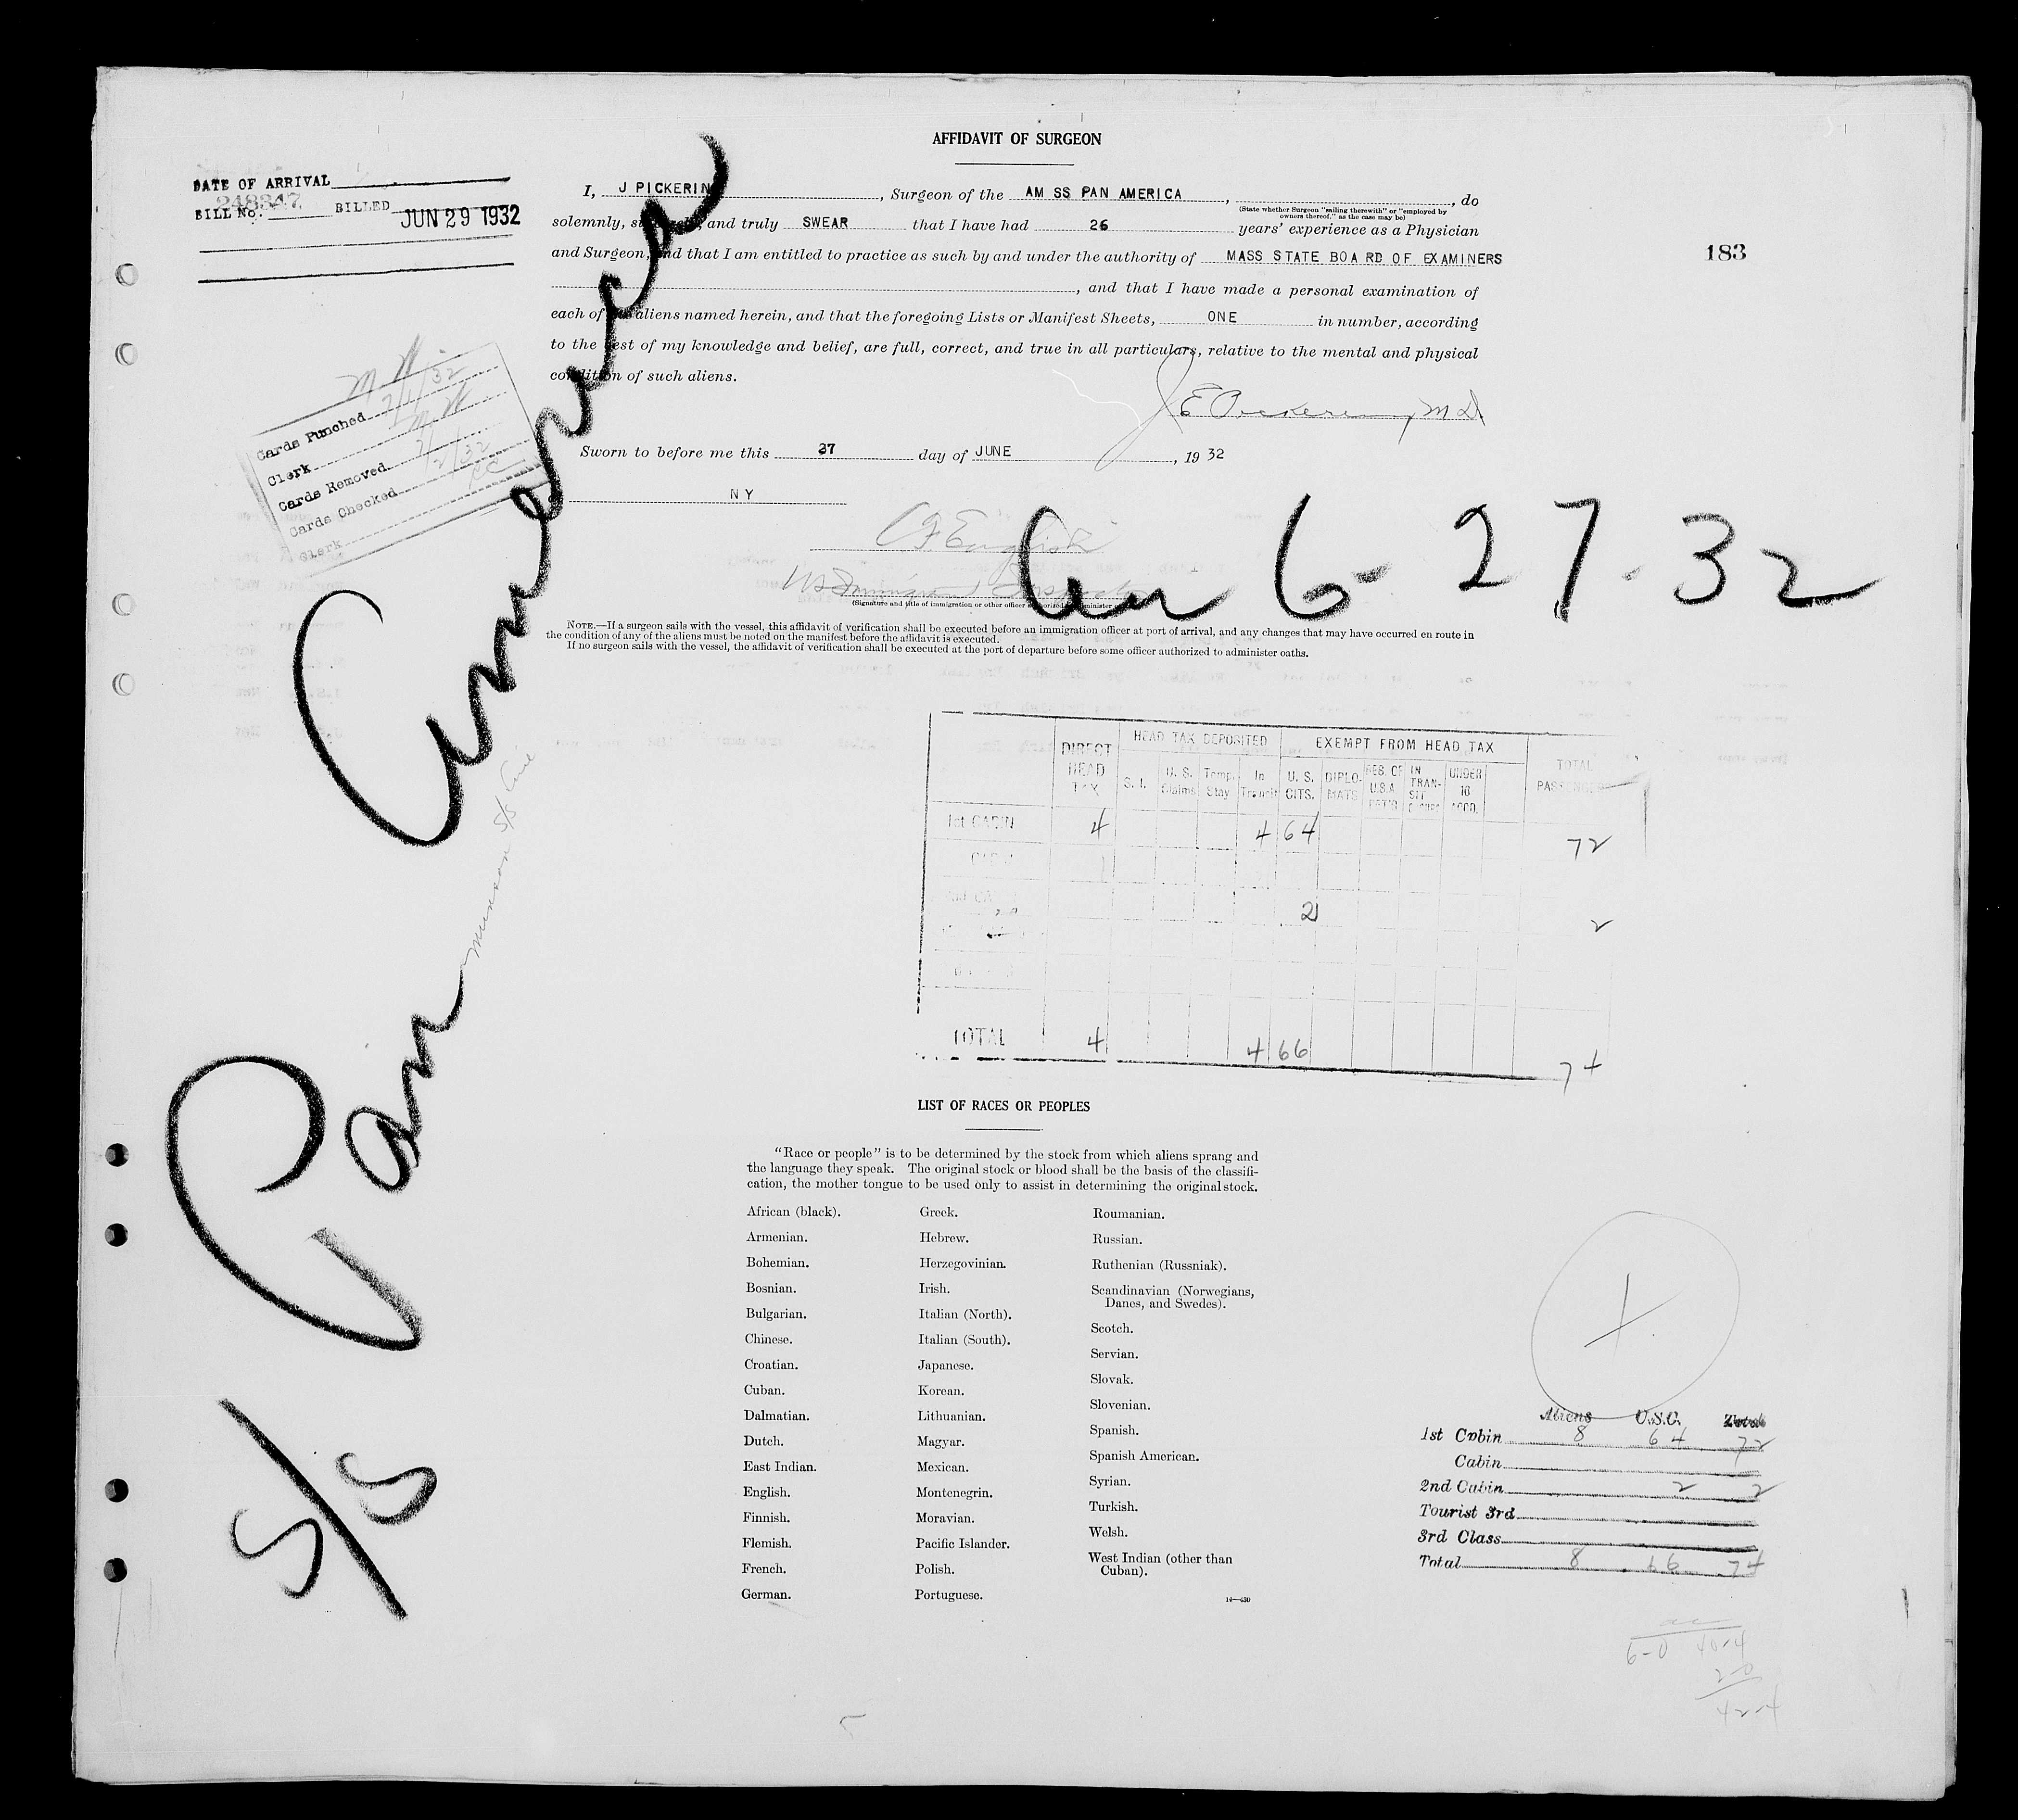 AFFIDAVIT OF SURGEON
DATE OF ARRIVAL
248347
BILL No. BILLED JUN 29 1932
183
I, J PICKERIN, Surgeon of the AM SS PAN AMERICA, , do
(State whether Surgeon "sailing therewith" or "employed by
owners thereof," as the case may be)
solemnly, and truly SWEAR that I have had 26 years' experience as a Physician
and Surgeon, and that I am entitled to practice as such by and under the authority of MASS STATE BOARD OF EXAMINERS
, and that I have made a personal examination of
each of aliens named herein, and that the foregoing Lists or Manifest Sheets, ONE in number, according
to the best of my knowledge and belief, are full, correct, and true in all particulars, relative to the mental and physical
condition of such aliens.
J E Pickering M D
Sworn to before me this 27 day of JUNE, 19 32
N Y
Cards Punched 7/1/32
Clerk
Cards Removed
Cards Checked 7/2/32
Clerk
English
US Immigrant Inspector
(Signature and title of immigration or other officer authorized to administer
6-27-32
NOTE.—If a surgeon sails with the vessel, this affidavit of verification shall be executed before an immigration officer at port of arrival, and any changes that may have occurred en route in
the condition of any of the aliens must be noted on the manifest before the affidavit is executed.
If no surgeon sails with the vessel, the affidavit of verification shall be executed at the port of departure before some officer authorized to administer oaths.
S/S Pan America
Munson S/S Line
DIRECT HEAD TAX
HEAD TAX DEPOSITED
EXEMPT FROM HEAD TAX
TOTAL PASSENGERS
S. I. U. S. Claims Temp. Stay In Transit U. S. CITS. DIPLO-MATS RES. OF U.S.A. IN TRAN-SIT UNDER 16 ACCD.
1st CABIN 4 4 64 72
2 2
TOTAL 4 4 66 74
LIST OF RACES OR PEOPLES
"Race or people" is to be determined by the stock from which aliens sprang and
the language they speak. The original stock or blood shall be the basis of the classifi-
cation, the mother tongue to be used only to assist in determining the original stock.
African (black).
Armenian.
Bohemian.
Bosnian.
Bulgarian.
Chinese.
Croatian.
Cuban.
Dalmatian.
Dutch.
East Indian.
English.
Finnish.
Flemish.
French.
German.
Greek.
Hebrew.
Herzegovinian.
Irish.
Italian (North).
Italian (South).
Japanese.
Korean.
Lithuanian.
Magyar.
Mexican.
Montenegrin.
Moravian.
Pacific Islander.
Polish.
Portuguese.
Roumanian.
Russian.
Ruthenian (Russniak).
Scandinavian (Norwegians,
Danes, and Swedes).
Scotch.
Servian.
Slovak.
Slovenian.
Spanish.
Spanish American.
Syrian.
Turkish.
Welsh.
West Indian (other than
Cuban).
14—430
Aliens U.S.C. Total
1st Cabin 8 64 72
Cabin
2nd Cabin 2 2
Tourist 3rd
3rd Class
Total 8 66 74
6-0 40-4
2-0
42-4